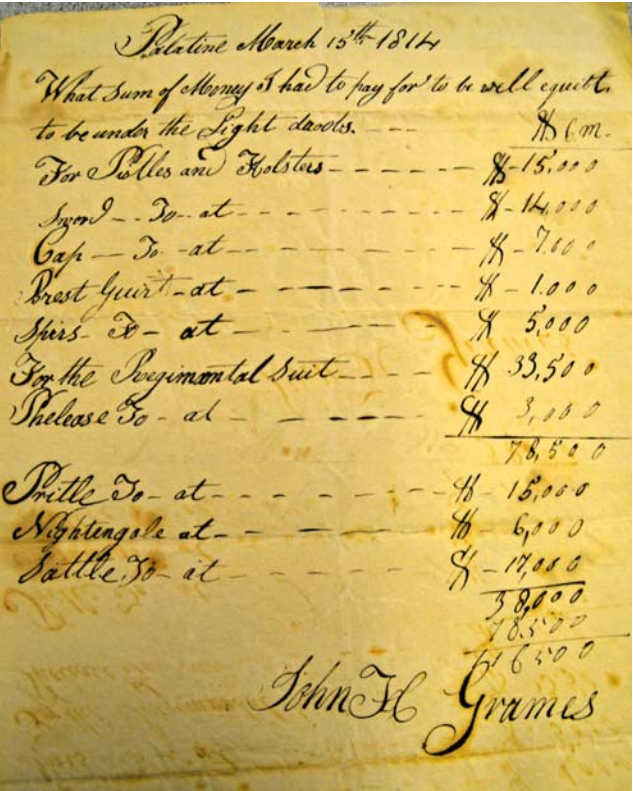 Palatine March 15th 1814
What Sum of Money I had to pay for to be well equibt.
to be under the Light - - - $ C m.
For Pistles and Holsters - - - - - $ - 15,000
Sword - - To - at - - - - - - - - - $ - 14,000
Cap - To - at - - - - - - - - $ - 7.000
Brest Guirt - at - - - - - - - - $ - 1.000
Spirs - To - at - - - - - - - $ 5,000
For the Regimantal Suit - - - - $ 33,500
Phelease To - at - - - - - - - $ 3,000
78,500
Pritle To - at - - - - - - - - $ - 15,000
Nightengale at - - - - - - - $ - 6,000
Sattle To - at - - - - - - - $ - 17,000
38,000
78.500
116500
John H Grames